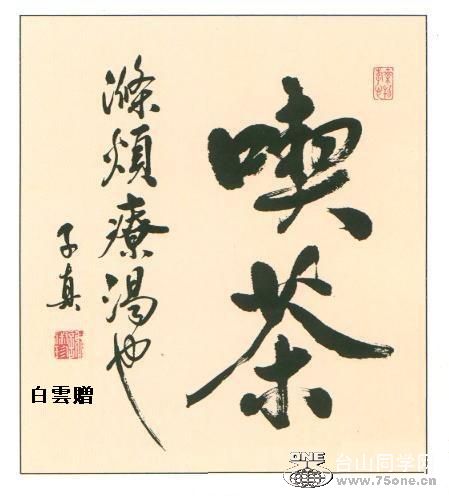 喫茶
滌煩療渴也
子真
白雲贈
ONE
台山同学网
www.75one.cn